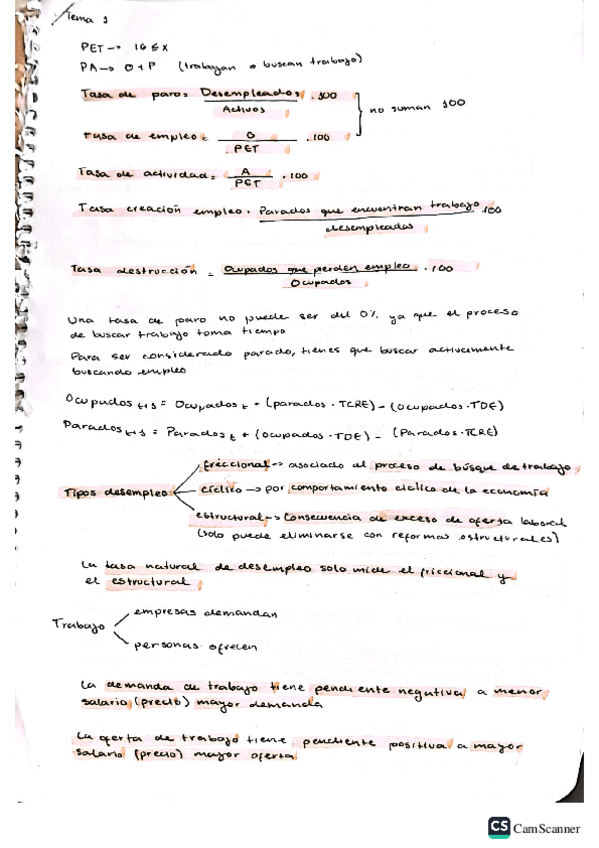 Tema 3
PET → 16 ≤ x
PA → O + P (trabajan o buscan trabajo)
Tasa de paro = Desempleados / Activos . 100
no suman 100
Tasa de empleo = O / PET . 100
Tasa de actividad = A / PET . 100
Tasa creación empleo = Parados que encuentran trabajo / desempleados . 100
Tasa destrucción = Ocupados que pierden empleo / Ocupados . 100
Una tasa de paro no puede ser del 0% ya que el proceso
de buscar trabajo toma tiempo
Para ser considerado parado, tienes que buscar activamente
buscando empleo
Ocupados t+1 = Ocupados t + (parados · TCRE) - (ocupados · TDE)
Parados t+1 = Parados t + (ocupados · TDE) - (Parados · TCRE)
Tipos desempleo
friccional → asociado al proceso de búsque de trabajo
cíclico → por comportamiento cíclico de la economía
estructural → Consecuencia de exceso de oferta laboral
(solo puede eliminarse con reformas estructurales)
La tasa natural de desempleo solo mide el friccional y
el estructural
Trabajo
empresas demandan
personas ofrecen
La demanda de trabajo tiene pendiente negativa a menor
salario (precio) mayor demanda
La oferta de trabajo tiene pendiente positiva a mayor
salario (precio) mayor oferta
CS CamScanner